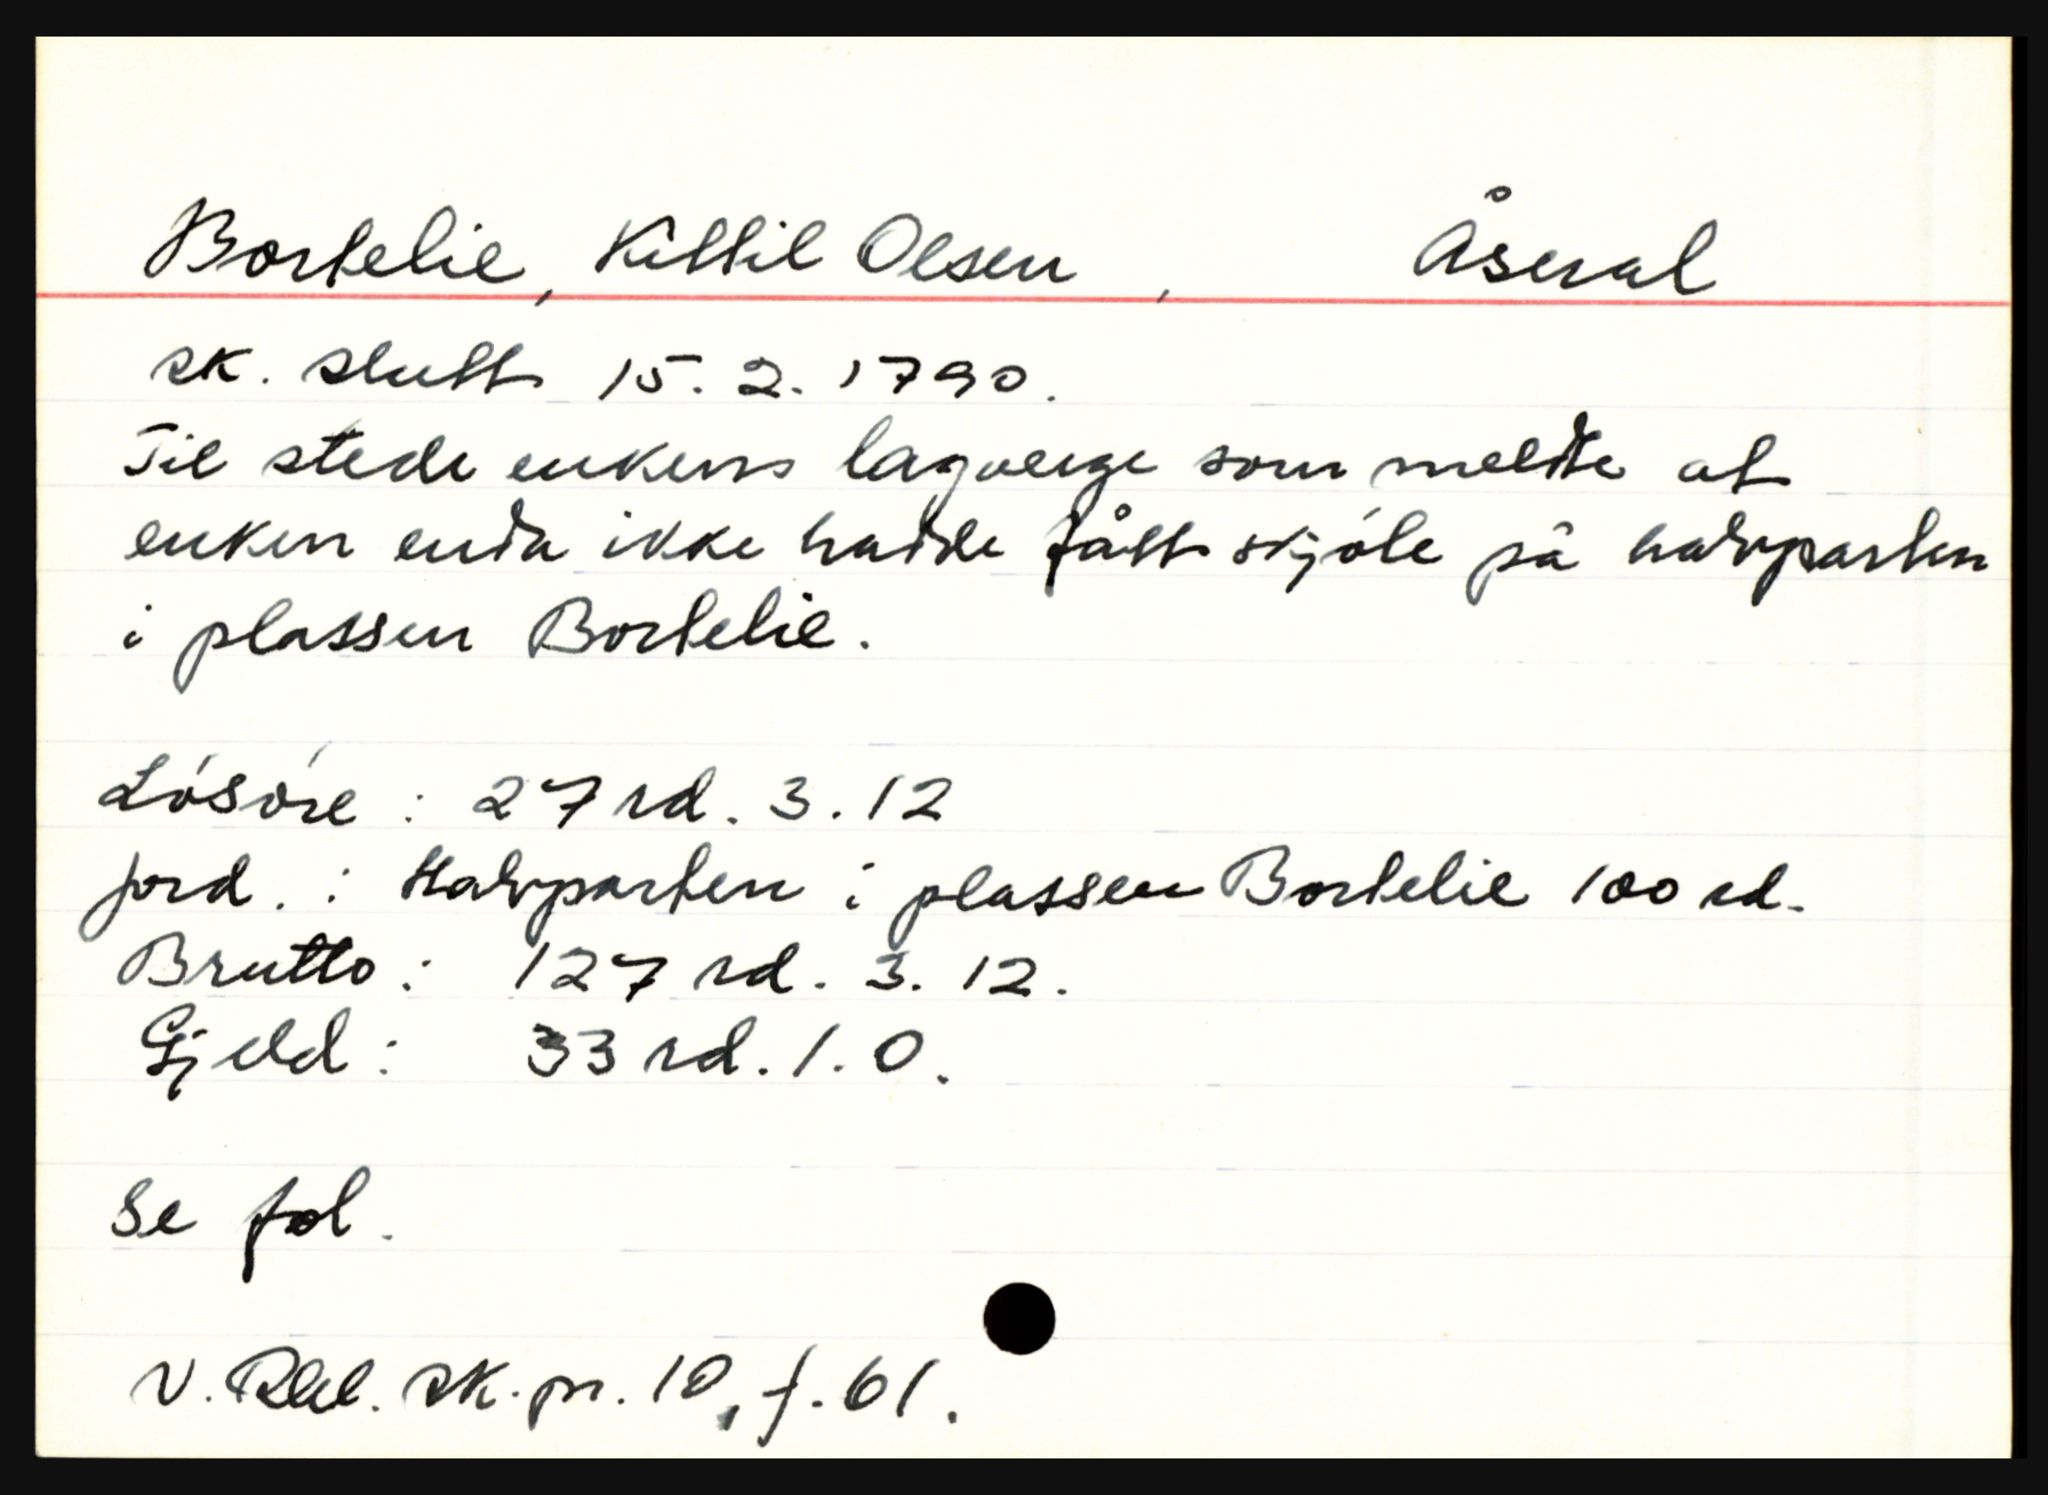 Bortelie, Kittil Olsen, Åseral
sk. slutt 15. 2. 1790.
Til stede enkens lagverge som meldte at
enken enda ikke hadde fått skjöte på halvparten
i plassen Bortelie.
Lösöre : 27 rd. 3. 12
jord. : Halvparten i plassen Bortelie 100 rd.
Brutto : 127 rd. 3. 12.
Gjeld : 33 rd. 1. 0.
Se fol.
V. Rbl. sk. pr. 10, f. 61.